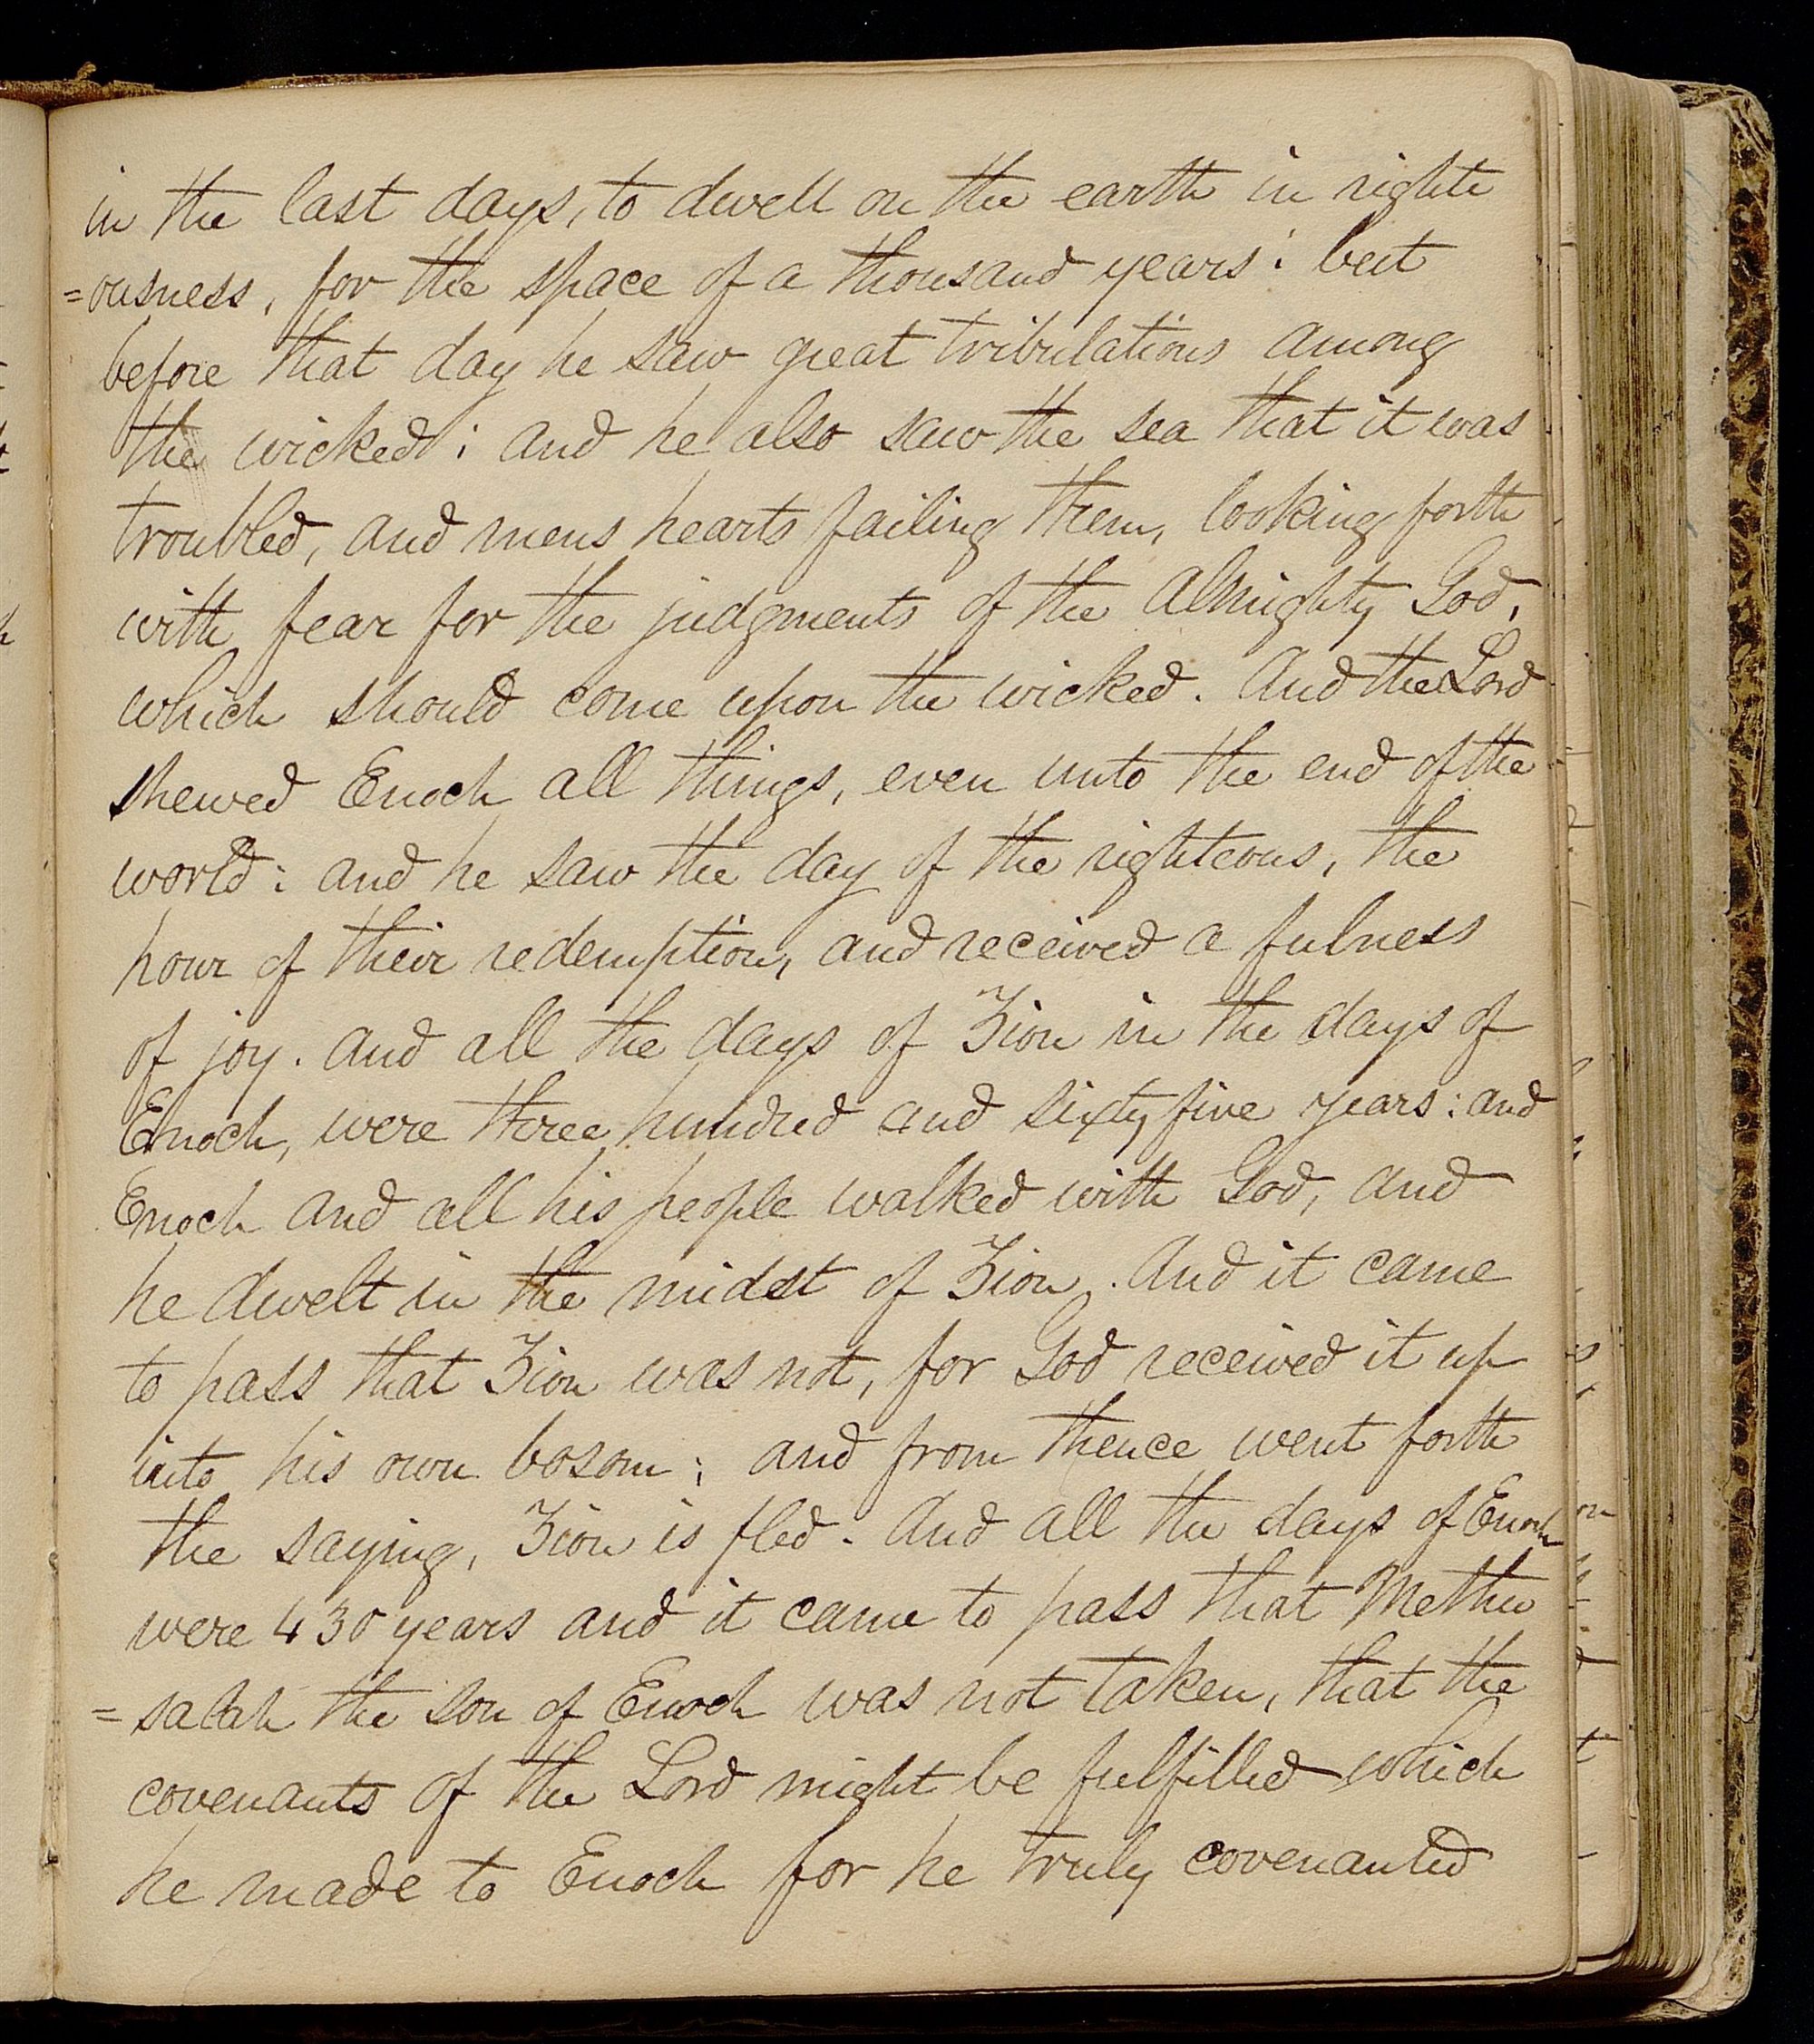 in the last days, to dwell on the earth in righte
=ousness, for the space of a thousand years: but
before that day he saw great tribulations among
the wicked; and he also saw the sea that it was
troubled, and mens hearts failing them, looking forth
with fear for the judgments of the Almighty God,
which should come upon the wicked. And the Lord
shewed Enoch all things, even unto the end of the
world: and he saw the day of the righteous, the
hour of their redemption, and received a fulness
of joy. And all the days of Zion in the days of
Enoch, were three hundred and sixty five years: and
Enoch and all his people walked with God, and
he dwelt in the midst of Zion. And it came
to pass that Zion was not, for God received it up
into his own bosom; and from thence went forth
the saying, Zion is fled. And all the days of Enoch
were 430 years and it came to pass that Methu
=salah the son of Enoch was not taken, that the
covenants of the Lord might be fulfilled which
he made to Enoch for he truly covenanted